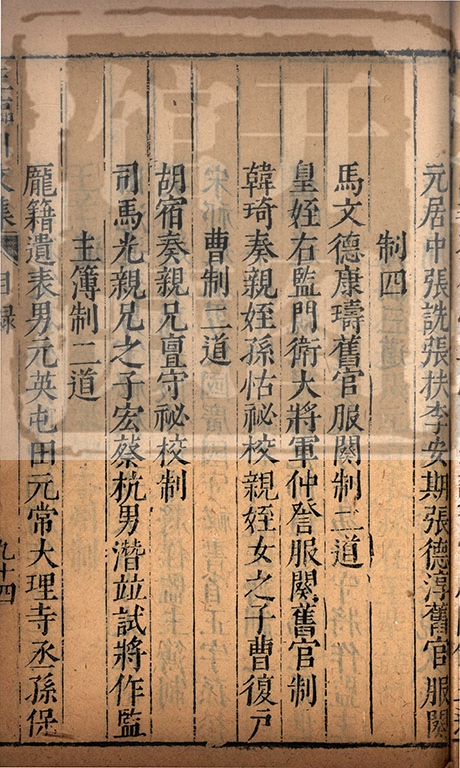 元居中張詵張扶李安期張德淳舊官服闋
制四
馬文德康璹舊官服闋制二道
皇姪右監門衛大將軍仲詧服闋舊官制
韓琦奏親姪孫怙祕校親姪女之子曹復戸
曹制二道
胡宿奏親兄亶守祕校制
司馬光親兄之子宏蔡杭男潛竝試將作監
主簿制二道
龎籍遺表男元英屯田元常大理寺丞孫保
目録
九十四